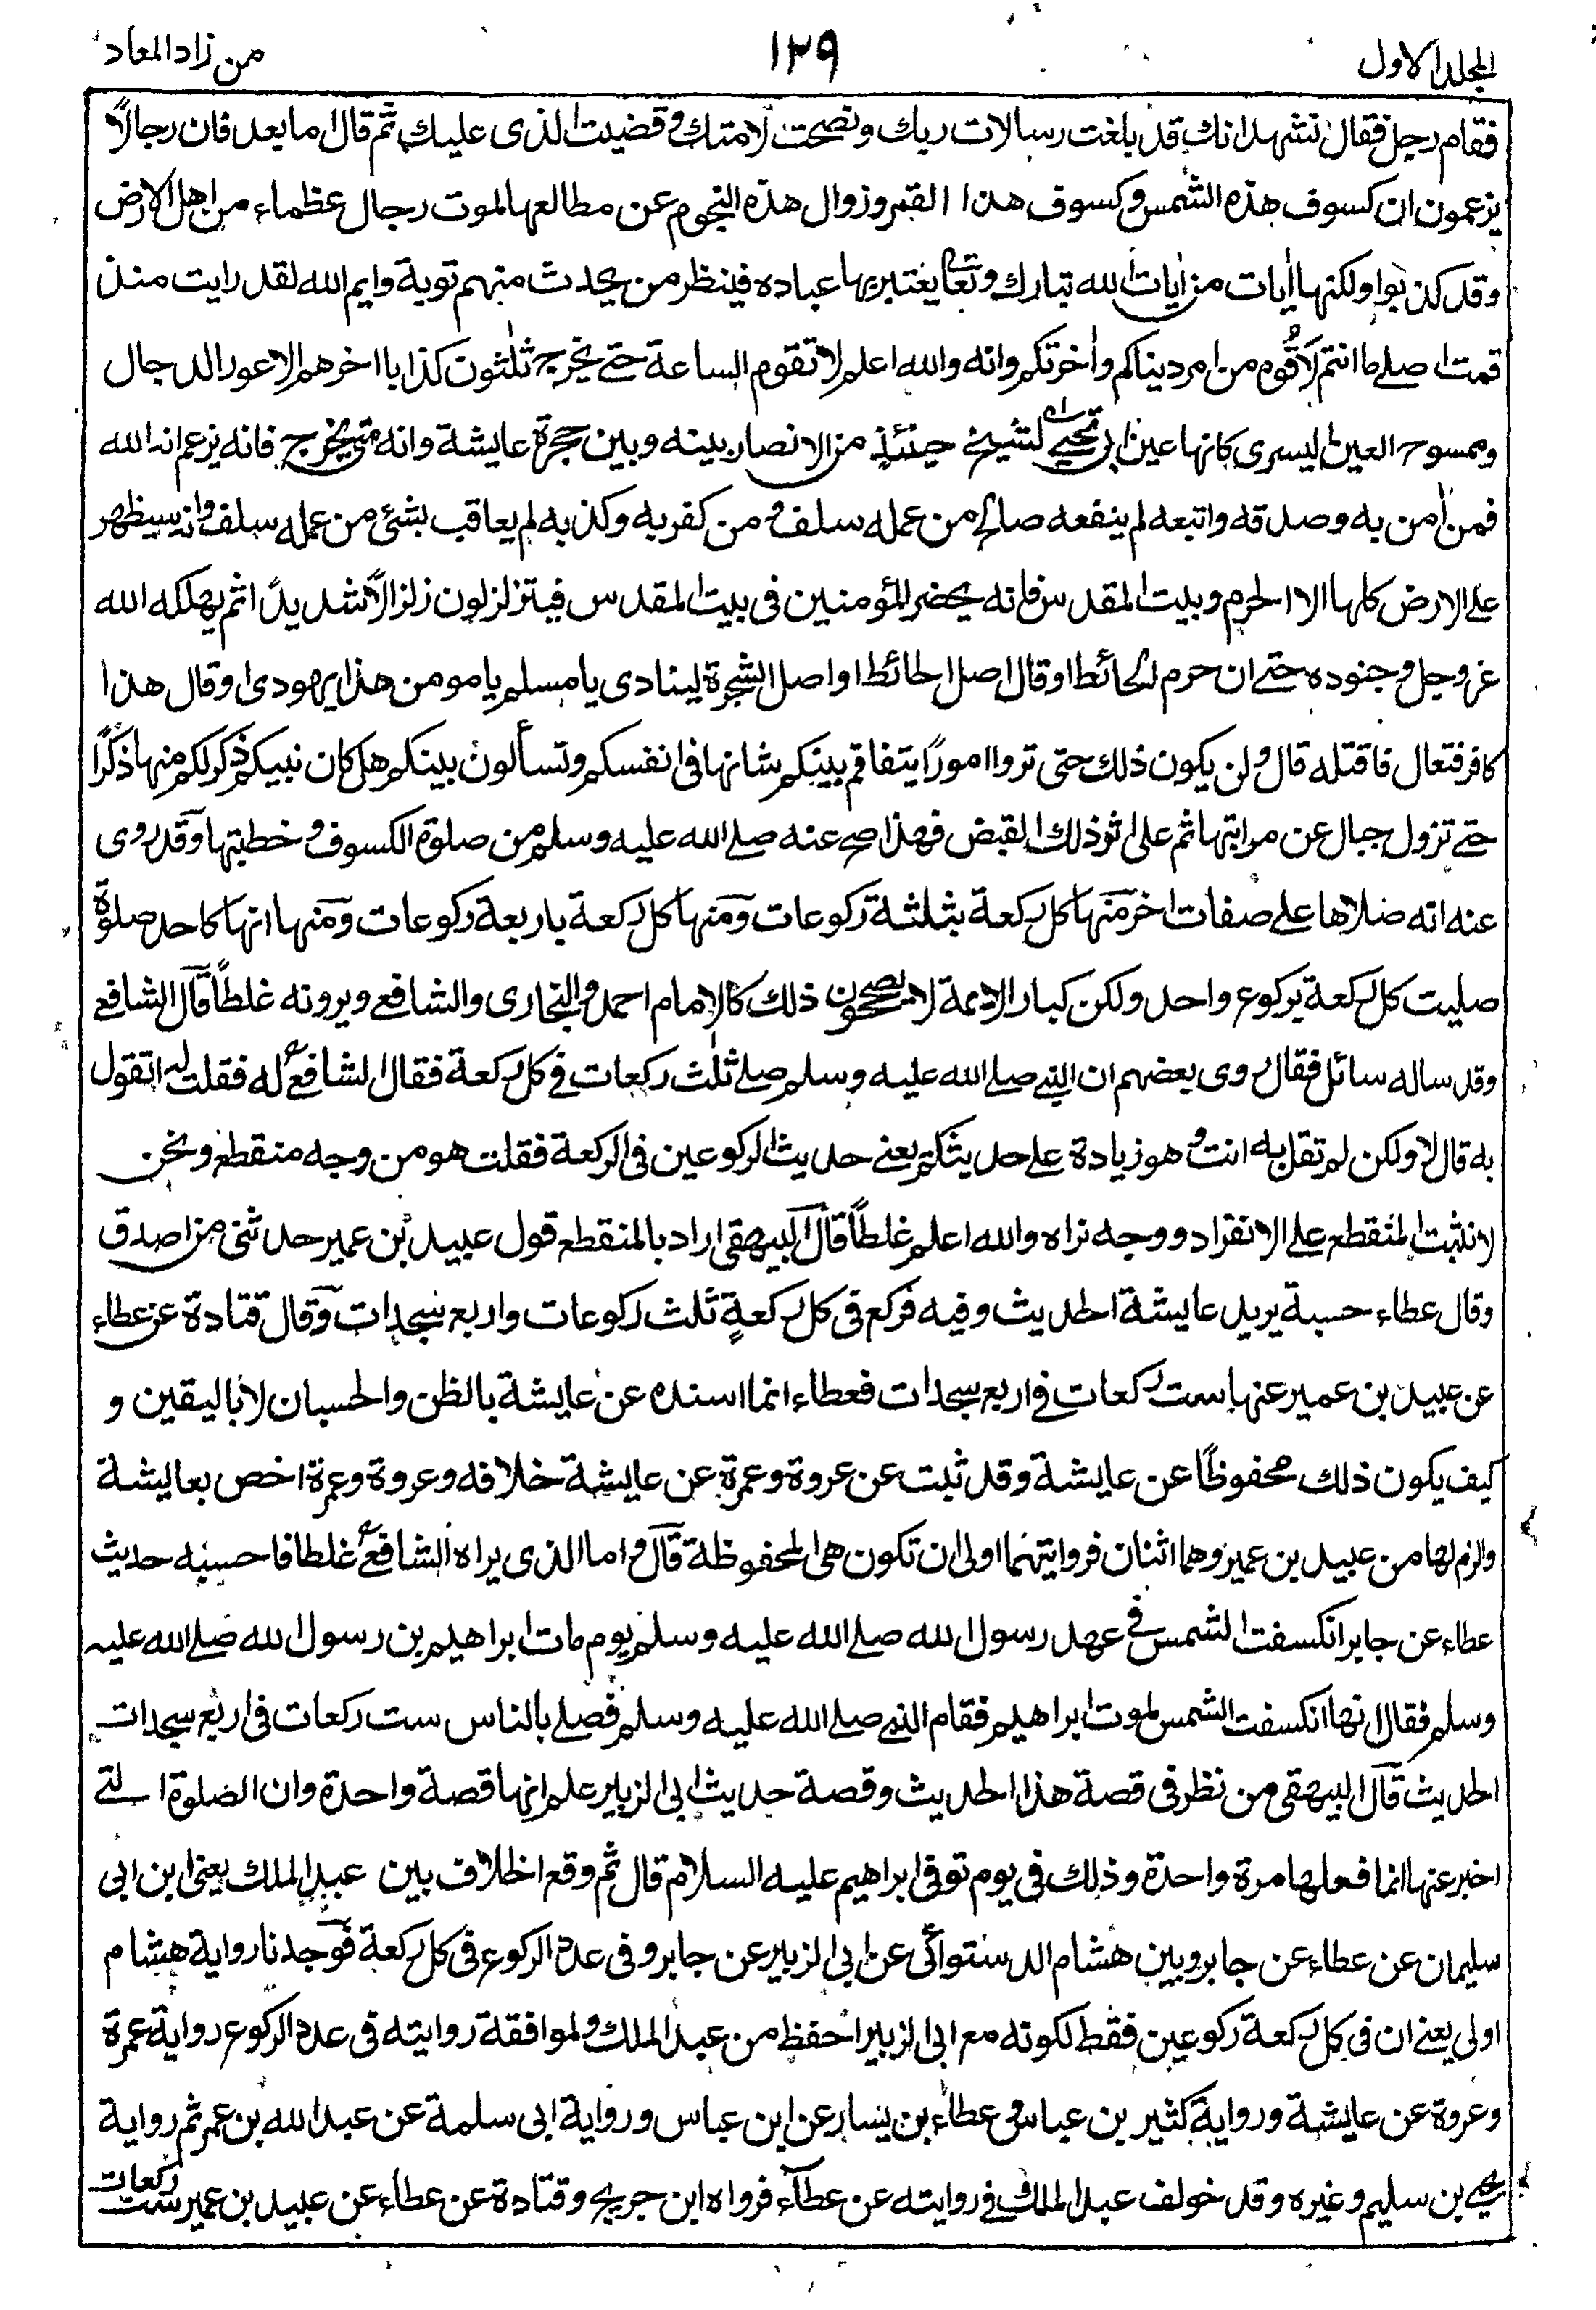 المجلد الاول
١٢٩
من زاد المعاد
فقام رجل فقال نشهد انك قد بلغت رسالات ربك ونصحت لامتك وقضيت الذى عليك ثم قال اما بعد فان رجالاً
يزعمون ان كسوف هذه الشمس وكسوف هذا القمر وزوال هذه النجوم عن مطالعها لموت رجال عظماء من اهل الارض
وقد كذبوا ولكنها اٰيات من اٰيات الله تبارك وتعالى يعتبر بها عباده فينظر من يحدث منهم توبة وايم الله لقد رايت منذ
قمت اصلے ما انتم لَاقُوه من امر دنياكم واٰخرتكم وانه والله اعلم لا تقوم الساعة حتے يخرج ثلٰثون كذابا اخرهم الاعور الدجال
وممسوح العين اليسرى كانها عين ابى تحيى لشيخ حينئذٍ من الانصار بينه وبين حجرة عايشة وانه متى يخرج فانه يزعم انه الله
فمن اٰمن به وصدقه واتبعه لم ينفعه صالح من عمله سلف ومن كفر به وكذبه لم يعاقب بشئ من عمله سلف وانه سيظهر
على الارض كلها الا الحرم وبيت المقدس فانه يحضر المؤمنين فى بيت المقدس فيتزلزلون زلزالاً شديداً ثم يهلكه الله
عزوجل وجنوده حتے ان حرم الحائط او قال اصل الحائط او اصل الشجرة لينادى يا مسلم يا مومن هذا يهودى او قال هذا
كافر فتعال فاقتله قال ولن يكون ذلك حتى تروا اموراً يتفاقم بينكم شانها فى انفسكم وتسألون بينكم هل كان نبيكم ذكر لكم منها ذكراً
حتے تزول جبال عن مراتبها ثم على اثر ذلك القبض فهذا صح عنه صلے الله عليه وسلم من صلوة الكسوف وخطبتها وقد روى
عنه انه صلاها علے صفات اخر منها كل ركعة بثلٰثة ركوعات ومنها كل ركعة باربعة ركوعات ومنها انها كاحد صلوة
صليت كل ركعة بركوع واحد ولكن كبار الائمة لا يصححون ذلك كالامام احمد والبخارى والشافعے ويرونه غلطاً قال الشافعے
وقد ساله سائل فقال روى بعضهم ان النبے صلے الله عليه وسلم صلے ثلٰث ركعات فے كل ركعة فقال الشافعے له فقلت له اتقول
به قال لا ولكن لم تقل به انت وهو زيادة علے حديثكم يعنے حديث الركوعين فى الركعة فقلت هو من وجه منقطع ونحن
لا نثبت المنقطع على الانفراد ووجه نراه والله اعلم غلطاً قال البيهقى اراد بالمنقطع قول عبيد بن عمير حدثنى من اصدق
وقال عطاء حسبته يريد عايشة الحديث وفيه فركع فى كل ركعةٍ ثلٰث ركوعات واربع سجدات وقال قتادة عن عطاء
عن عبيد بن عمير عنها ست ركعات فے اربع سجدات فعطاء انما اسنده عن عايشة بالظن والحسبان لا باليقين و
كيف يكون ذلك محفوظاً عن عايشة وقد ثبت عن عروة وعمرة عن عايشة خلافه وعروة وعمرة اخص بعايشة
والزم لها من عبيد بن عمير وهما اثنان فروايتهما اولى ان تكون هى المحفوظة قال واما الذى يراه الشافعے غلطا فاحسبه حديث
عطاء عن جابر انكسفت الشمس فى عهد رسول الله صلے الله عليه وسلم يوم مات ابراهيم بن رسول الله صلے الله عليه
وسلم فقال انها انكسفت الشمس لموت ابراهيم فقام النبے صلے الله عليه وسلم فصلے بالناس ست ركعات فى اربع سجدات
الحديث قال البيهقى من نظر فى قصة هذا الحديث وقصة حديث ابى الزبير علم انها قصة واحدة وان الصلوة التے
اخبر عنها انما فعلها مرة واحدة وذلك فى يوم توفى ابراهيم عليه السلام قال ثم وقع الخلاف بين عبد الملك يعنى ابن ابى
سليمان عن عطاء عن جابر وبين هشام الدستوائى عن ابى الزبير عن جابر وفى عدد الركوع فى كل ركعة فوجدنا رواية هشام
اولى يعنے ان فى كل ركعة ركوعين فقط لكونه مع ابى الزبير احفظ من عبد الملك ولموافقة روايته فى عدد الركوع رواية عمرة
وعروة عن عايشة ورواية كثير بن عباس وعطاء بن يسار عن ابن عباس ورواية ابى سلمة عن عبد الله بن عمر ثم رواية
يحيے بن سليم وغيره وقد خولف عبد الملك فے روايته عن عطاء فرواه ابن جريج وقتادة عن عطاء عن عبيد بن عمير ست ركعات